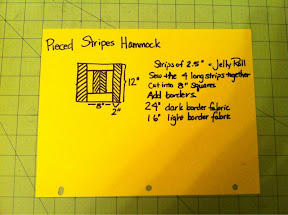 Pieced Stripes Hammock
Strips of 2.5" - Jelly Roll
Sew the 4 long strips together
Cut into 8" squares
Add borders.
24" dark border fabric
16" light border fabric
12"
8"
2"